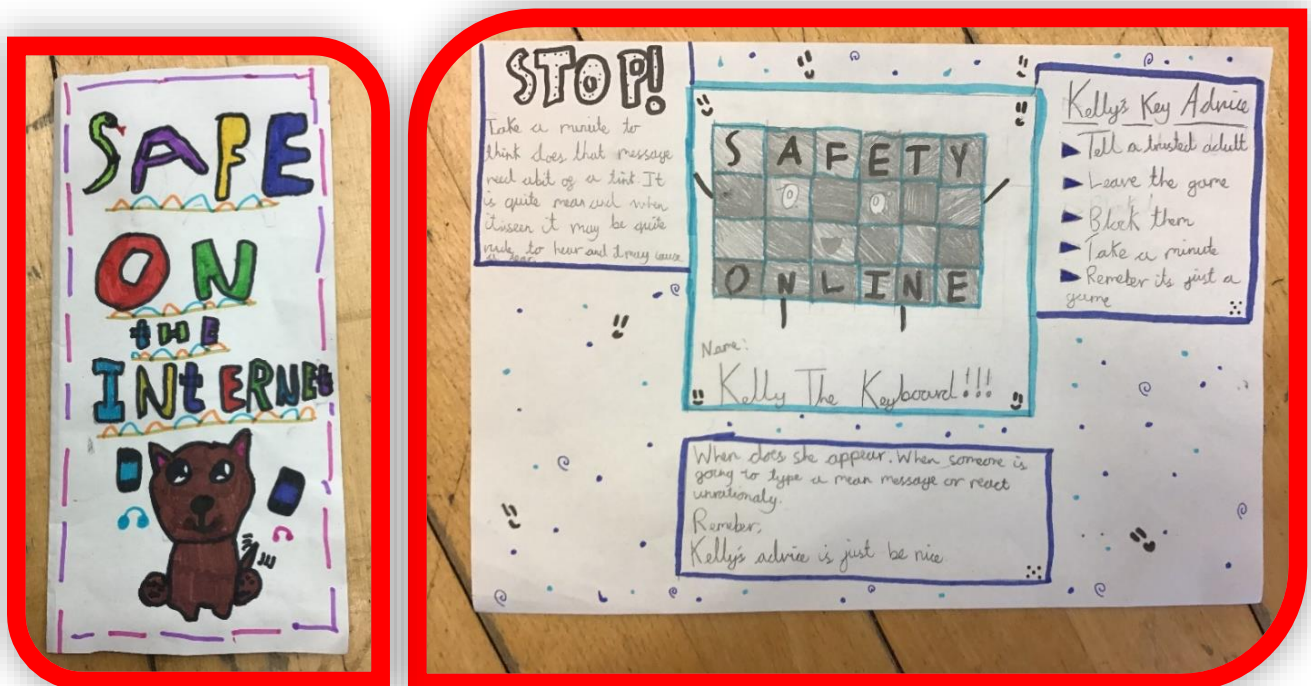 SAFE
ON
the
INtERNEt
STOP!
Take a minute to
think does that message
need abit of a tint. It
is quite mean and when
it's seen it may be quite
rude to hear and it may cause
a tear
SAFETY
ONLINE
Name:
Kelly The Keyboard!!!
Kelly's Key Advice
Tell a trusted adult
Leave the game
Block them
Take a minute
Remeber its just a
game
When does she appear. When someone is
going to type a mean message or react
unrationaly.
Remeber,
Kelly's advice is just be nice